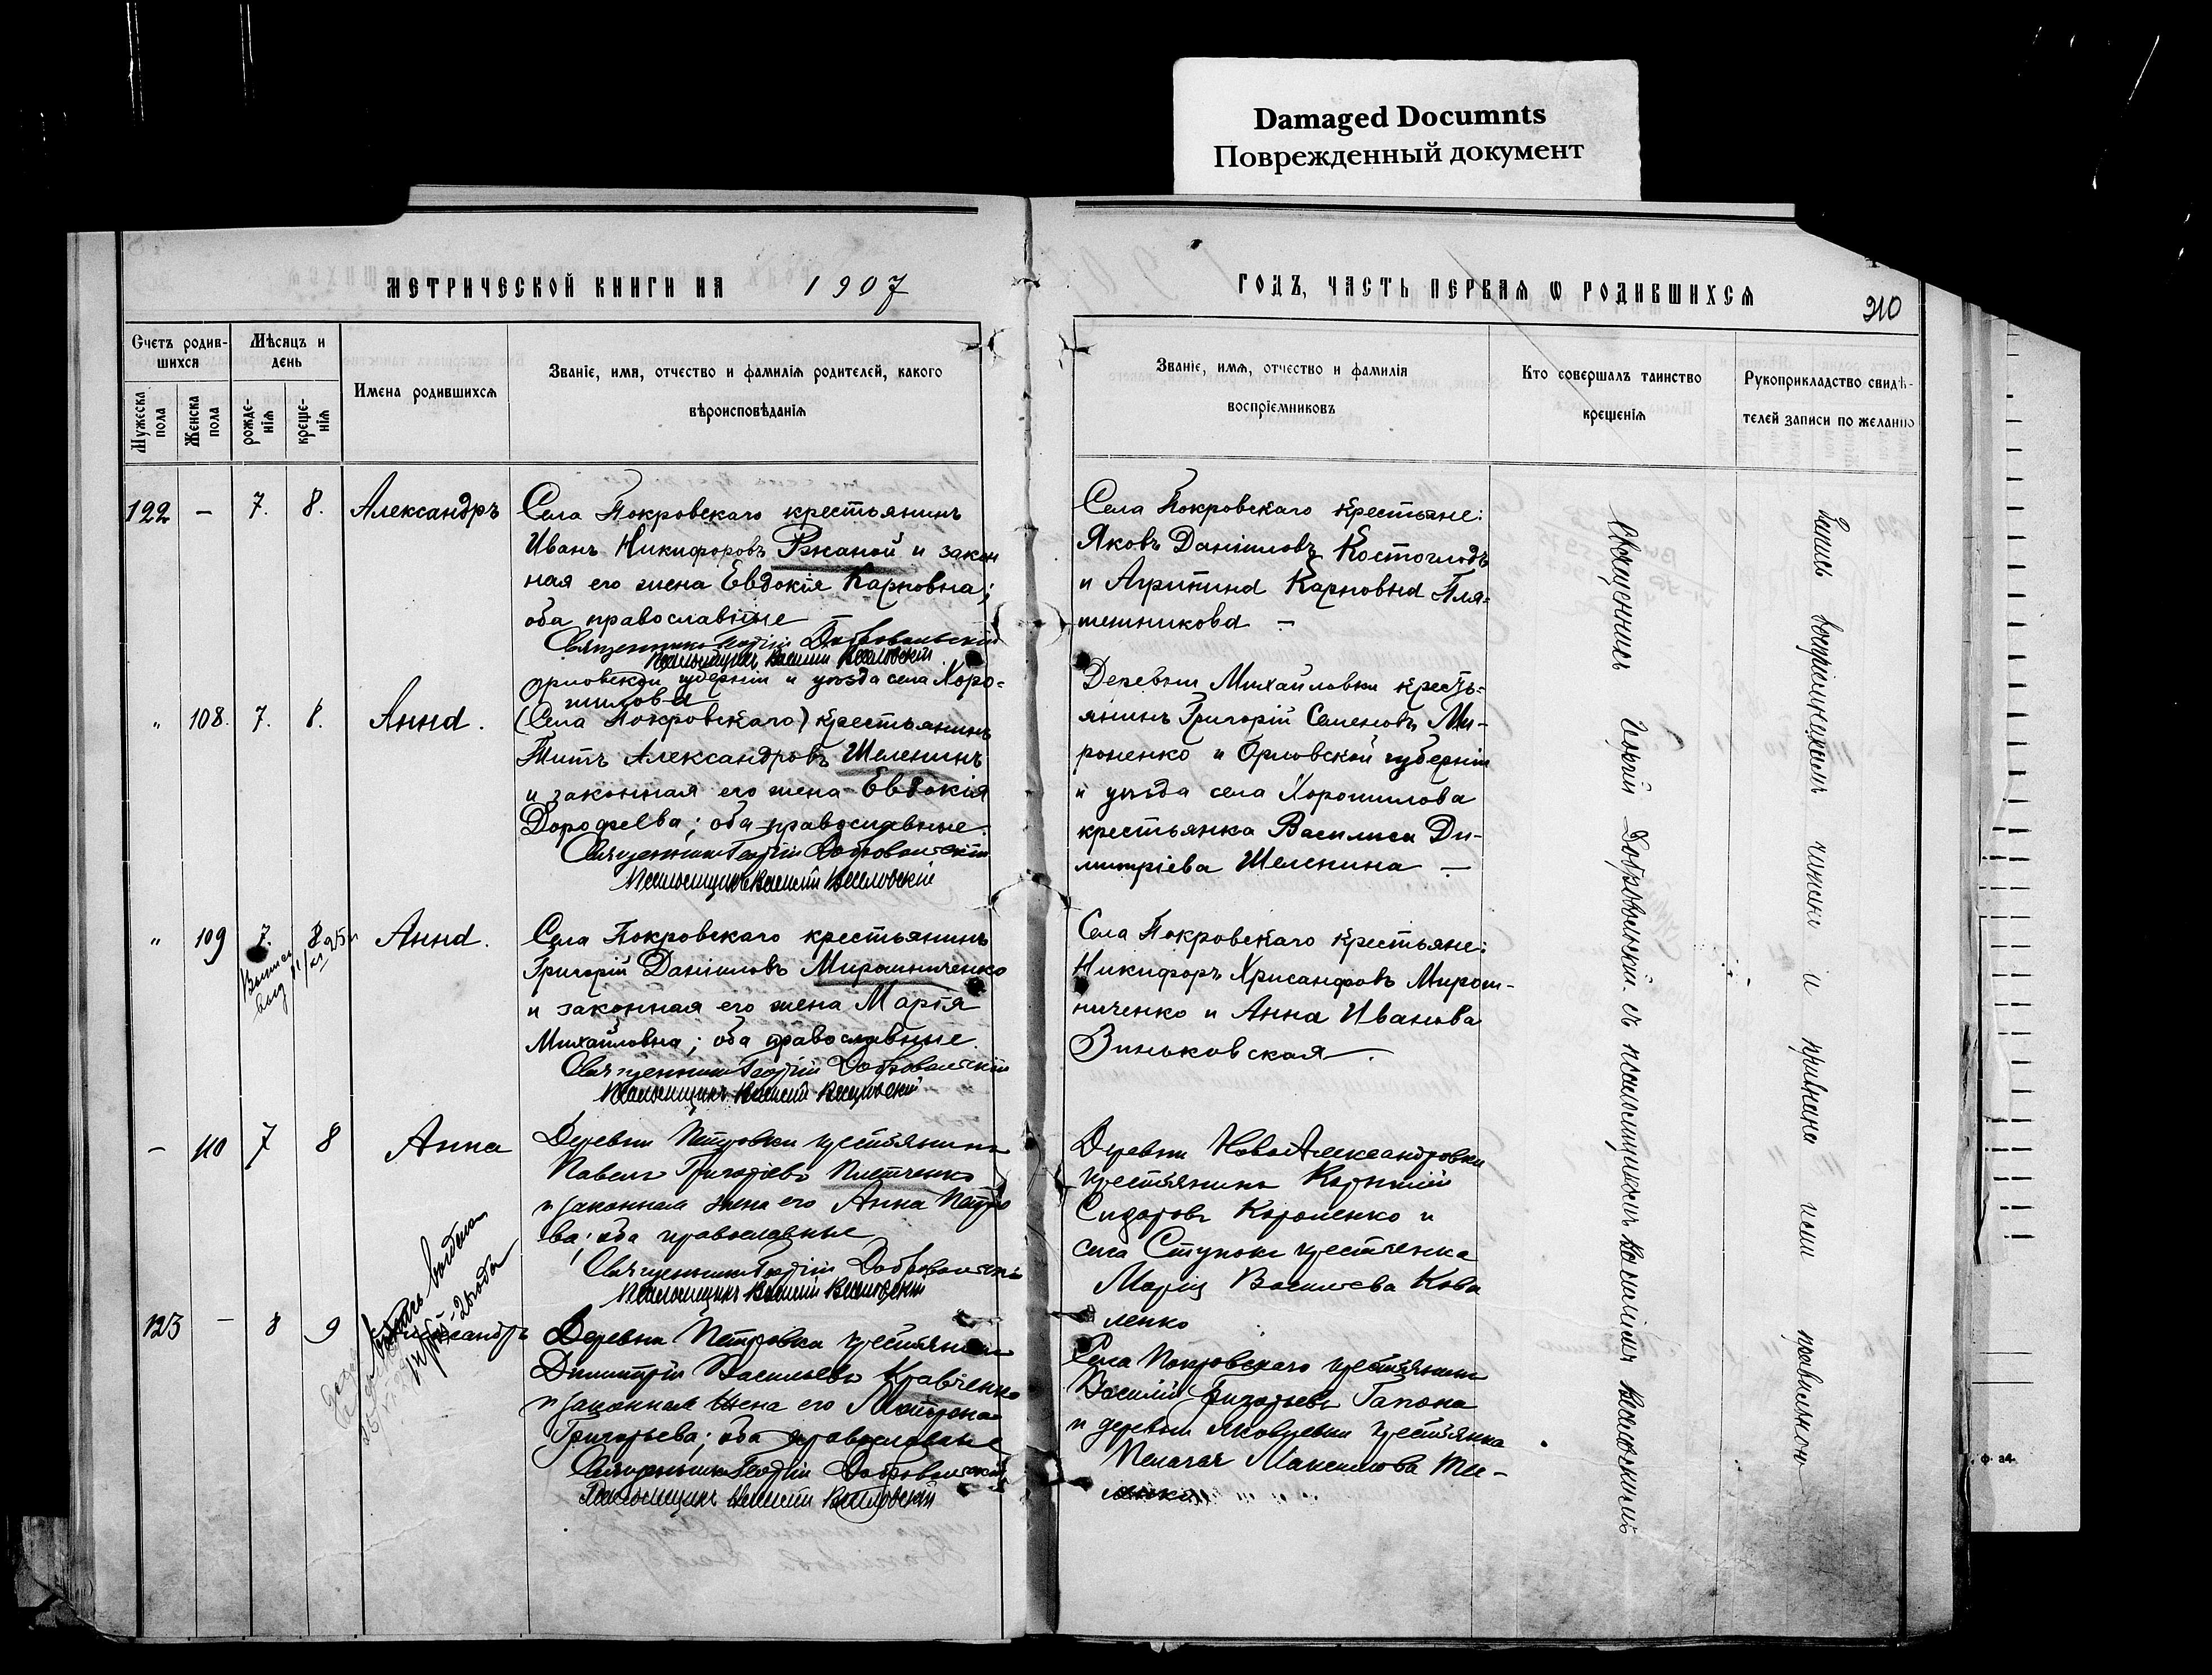 Damaged Documnts
Поврежденный документ
МЕТРИЧЕСКОЙ КНИГИ НА 1907
ГОДЪ, ЧАСТЬ ПЕРВАЯ Ѡ РОДИВШИХСЯ
210
Счетъ родив-
шихся
Мѣсяцъ и
день
Мужеска
пола
Женска
пола
рожде-
нія
креще-
нія
Имена родившихся
Званіе, имя, отчество и фамилія родителей, какого
вѣроисповѣданія
Званіе, имя, отчество и фамилія
воспріемниковъ
Кто совершалъ таинство
крещенія
Рукоприкладство свидѣ-
телей записи по желанію
122 – 7. 8. Александръ
Села Покровскаго крестьянинъ
Иванъ Никифоровъ Ржаной и закон
ная его жена Евдокія Карповна;
оба православные
Священникъ Георгій Добровольскій
Псаломщикъ Василій
Села Покровскаго крестьяне:
Яковъ Даніиловъ Костоглодъ
и Агрипина Карповна Пля-
шешникова –
" 108. 7. 8. Анна.
Орловской губерніи и уѣзда села Хоро-
шилова
(Села Покровскаго) крестьянинъ
Титъ Александровъ Шеленинъ
и законная его жена Евдокія
Дорофеева; оба православные.
Священникъ Георгій Добровольскій
Псаломщикъ Василій
Деревни Михайловки кресть-
янинъ Григорій Семеновъ Ми-
роненко и Орловской губерніи
и уѣзда села Хорошилова
крестьянка Василиса Ди-
митріева Шеленина –
" 109 7. 8 Анна.
Села Покровскаго крестьянинъ
Григорій Даніиловъ Мирошниченко
и законная его жена Марія
Михайловна; оба православные.
Священникъ Георгій Добровольскій
Псаломщикъ Василій
Села Покровскаго крестьяне:
Никифоръ Хрисанфовъ Мирош-
ниченко и Анна Иванова
Зиньковская.
– 110 7 8 Анна
Деревни Петровки крестьянинъ
Павелъ Григорьевъ
и законная жена его Анна Петро
ва; оба православные
Священникъ Георгій Добровольскій
Псаломщикъ Василій
Деревни НовоАлександровки
крестьянинъ Корнилій
Сидоровъ Короленко и
села Ступокъ крестьянка
Марія Васильева Кова
ленко
123 – 8 9
Деревни Петровки крестьянинъ
Димитрій Васильевъ Кравченко
и законная жена его Матрона
Григорьева; оба православные
Священникъ Георгій Добровольскій
Псаломщикъ Василій
Села Покровскаго крестьянинъ
Василій Григорьевъ Гапона
и деревни Яковлевки крестьянка
Пелагея Максимова
Священникъ Георгій Добровольскій съ псаломщикомъ Василіемъ